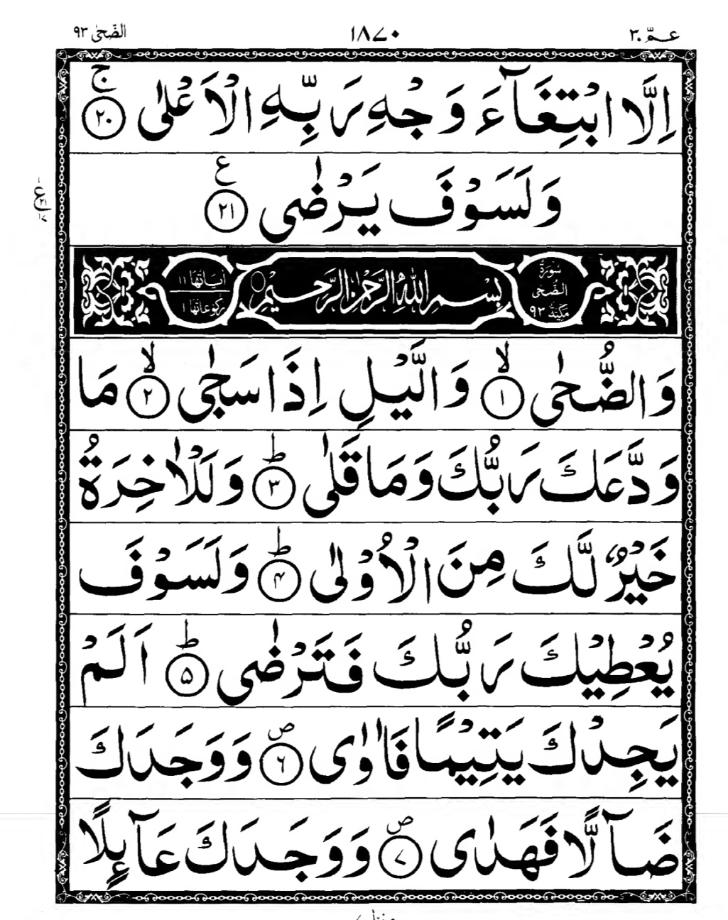 عــمّ ٣٠
١٨٧٠
الضّحٰى ٩٣
اِلَّا ابْتِغَآءَ وَجْهِ رَبِّهِ الْاَعْلٰى ۚ ﴿٢٠﴾
وَلَسَوْفَ يَرْضٰى ﴿٢١﴾ ع
سُوْرَةُ الضُّحٰى مَكِّيَّةٌ ٩٣
بِسْمِ اللّٰهِ الرَّحْمٰنِ الرَّحِيْمِ
اٰيَاتُهَا ١١
رُكُوْعَاتُهَا ١
وَالضُّحٰى ۙ ﴿١﴾ وَالَّيْلِ اِذَا سَجٰى ۙ ﴿٢﴾ مَا
وَدَّعَكَ رَبُّكَ وَمَا قَلٰى ؕ ﴿٣﴾ وَلَلْاٰخِرَةُ
خَيْرٌ لَّكَ مِنَ الْاُوْلٰى ؕ ﴿۴﴾ وَلَسَوْفَ
يُعْطِيْكَ رَبُّكَ فَتَرْضٰى ؕ ﴿۵﴾ اَلَمْ
يَجِدْكَ يَتِيْمًا فَاٰوٰى ۪ ﴿٦﴾ وَوَجَدَكَ
ضَآلًّا فَهَدٰى ۪ ﴿٧﴾ وَوَجَدَكَ عَآئِلًا